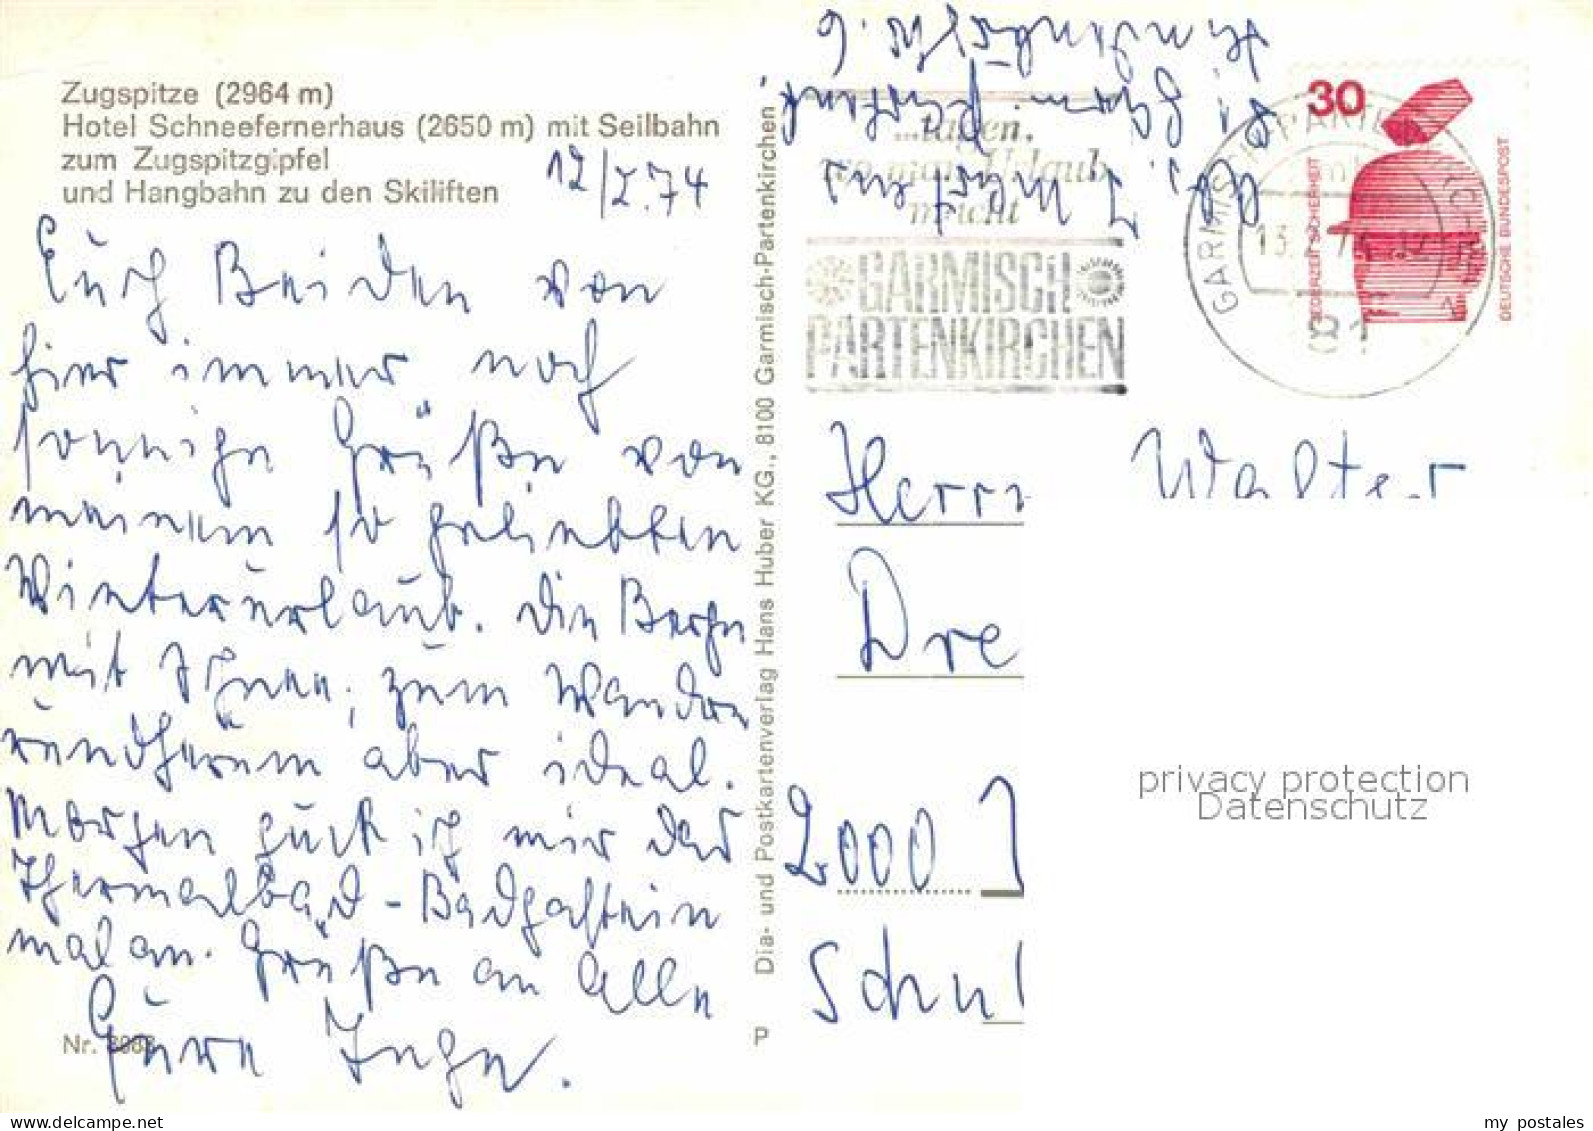 Zugspitze (2964 m)
Hotel Schneefernerhaus (2650 m) mit Seilbahn
zum Zugspitzgipfel
und Hangbahn zu den Skiliften
12/2.74
Euch Beiden von
hier immer noch
sonnige Grüße von
meinem so geliebten
Winterurlaub. Die Berge
mit Schnee, zum Wandern
rundherum aber ideal.
Morgen guck ich mir das
Thermalbad-Badgastein
mal an. Grüße an Alle
Eure Inge.
Nr.
P
Dia- und Postkartenverlag Hans Huber KG., 8100 Garmisch-Partenkirchen
Abs.
81 Garm. Partenk.
...tagen,
wo man Urlaub
macht
GARMISCH
PARTENKIRCHEN
GARMISCH-PARTENKIRCHEN
81
30
JEDERZEIT SICHERHEIT
DEUTSCHE BUNDESPOST
Herrn Walter
Dre
2000
Schul
privacy protection
Datenschutz
my postales